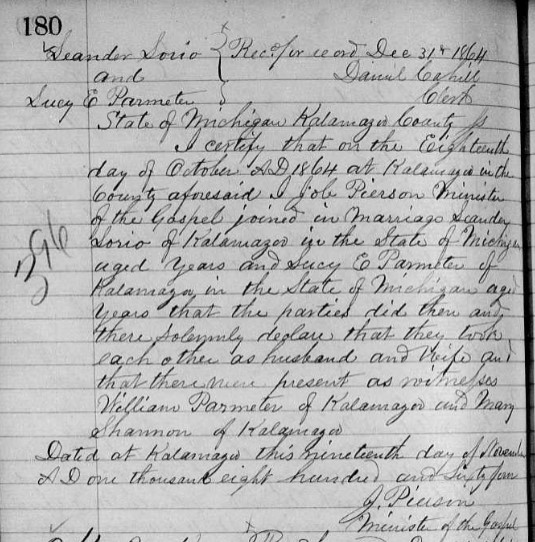 180
Leander Sorio { Rec'd for record Dec 31st 1864
and { Daniel Cahill
Lucy E Parmeter } Clerk
State of Michigan Kalamazoo County ss
I certify that on the Eighteenth
day of October AD, 1864 at Kalamazoo in the
County aforesaid I Job Pierson Minister
of the Gospel joined in Marriage Leander
Sorio of Kalamazoo in the State of Michigan
aged Years and Lucy E Parmeter of
Kalamazoo, in the State of Michigan aged
Years that the parties did then and
there solemnly declare that they took
each other as husband and Wife and
that there were present as witnesses
William Parmeter of Kalamazoo and Mary
Shannon of Kalamazoo
Dated at Kalamazoo this nineteenth day of November
AD one thousand eight hundred and Sixty four
J. Pierson
Minister of the Gospel